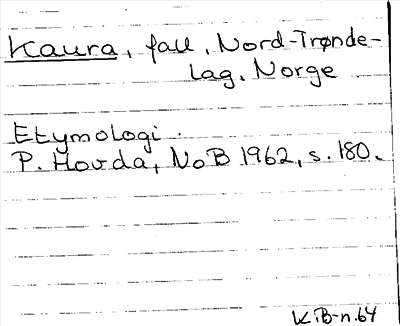 Kaura, fall, Nord-Trønde-
lag, Norge
Etymologi.
P. Hovda, NoB 1962, s. 180.
K.B-n.64